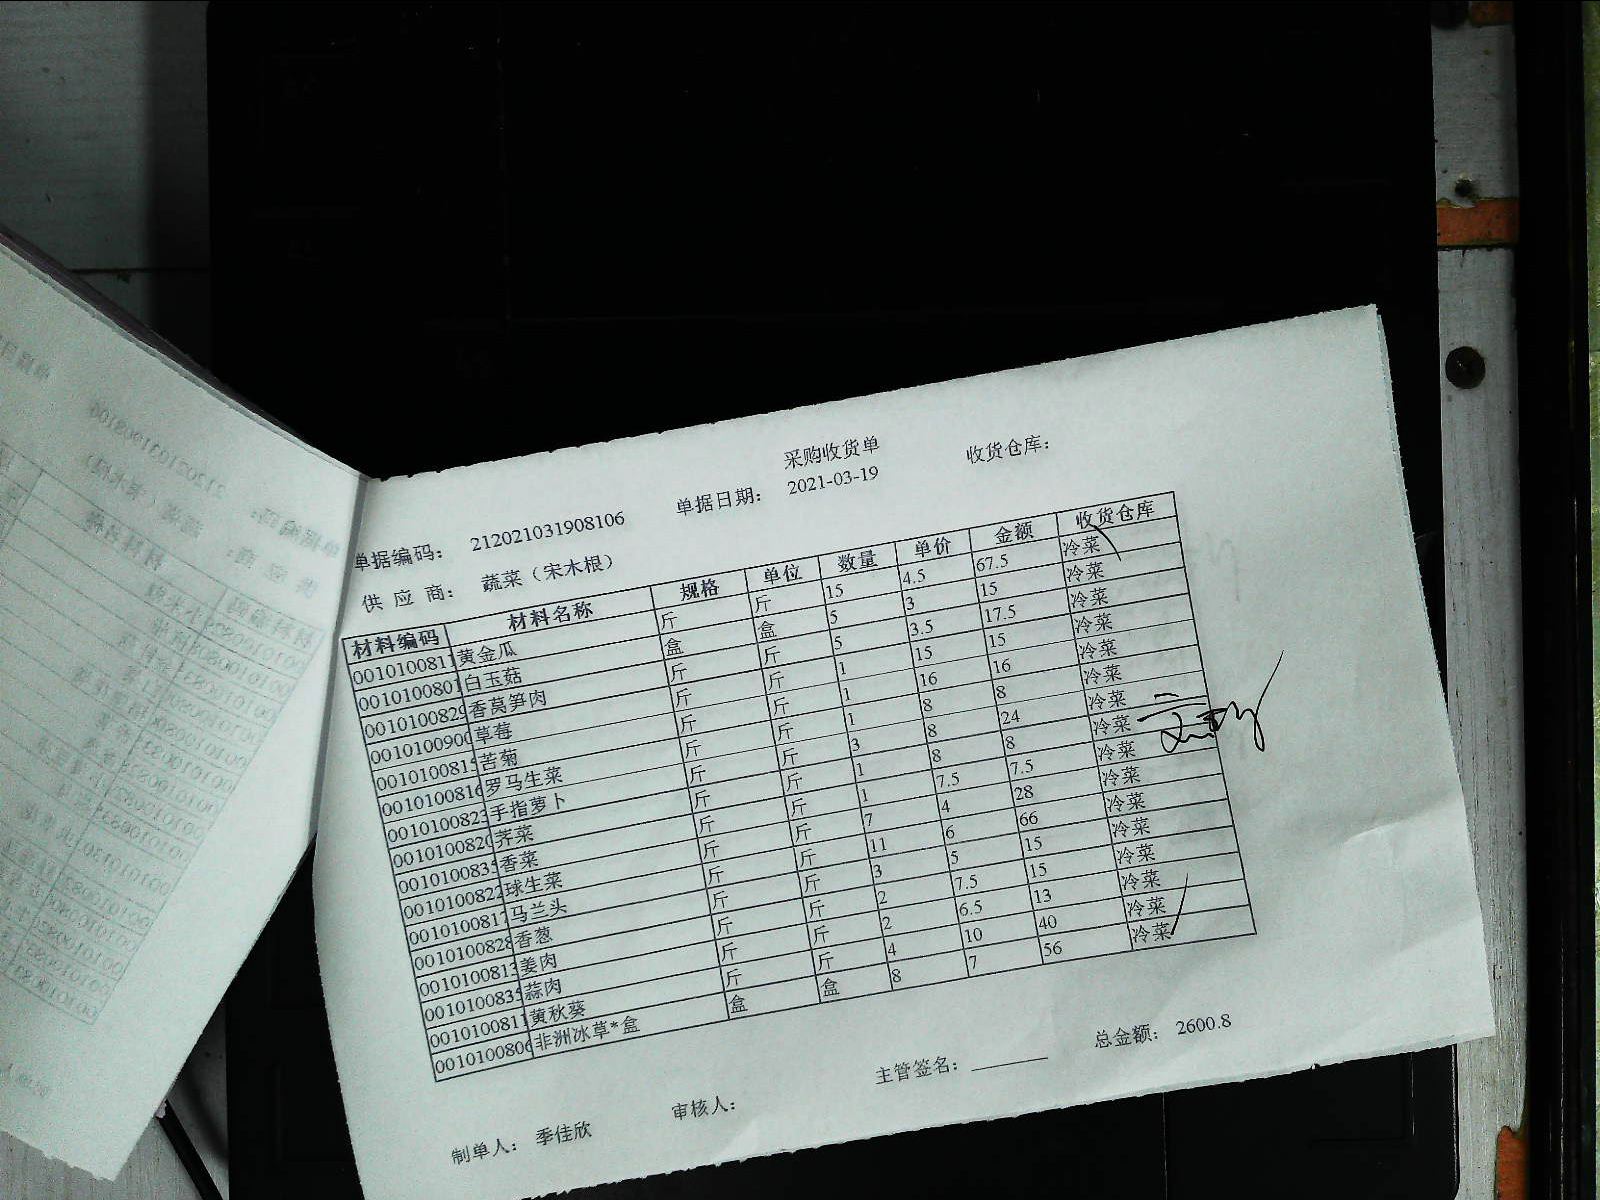 采购收货单
单据编码: 212021031908106 单据日期: 2021-03-19 收货仓库:
供 应 商: 蔬菜（宋木根）
材料编码 材料名称 规格 单位 数量 单价 金额 收货仓库
0010100811 黄金瓜 斤 斤 15 4.5 67.5 冷菜
0010100801 白玉菇 盒 盒 5 3 15 冷菜
0010100829 香莴笋肉 斤 斤 5 3.5 17.5 冷菜
0010100900 草莓 斤 斤 1 15 15 冷菜
0010100815 苦菊 斤 斤 1 16 16 冷菜
0010100816 罗马生菜 斤 斤 1 8 8 冷菜
0010100823 手指萝卜 斤 斤 3 8 24 冷菜
0010100820 荠菜 斤 斤 1 8 8 冷菜
0010100835 香菜 斤 斤 1 7.5 7.5 冷菜
0010100822 球生菜 斤 斤 7 4 28 冷菜
0010100817 马兰头 斤 斤 11 6 66 冷菜
0010100828 香葱 斤 斤 3 5 15 冷菜
0010100813 姜肉 斤 斤 2 7.5 15 冷菜
0010100835 蒜肉 斤 斤 2 6.5 13 冷菜
0010100811 黄秋葵 斤 斤 4 10 40 冷菜
0010100806 非洲冰草*盒 盒 盒 8 7 56 冷菜
制单人: 季佳欣 审核人: 主管签名: 总金额: 2600.8